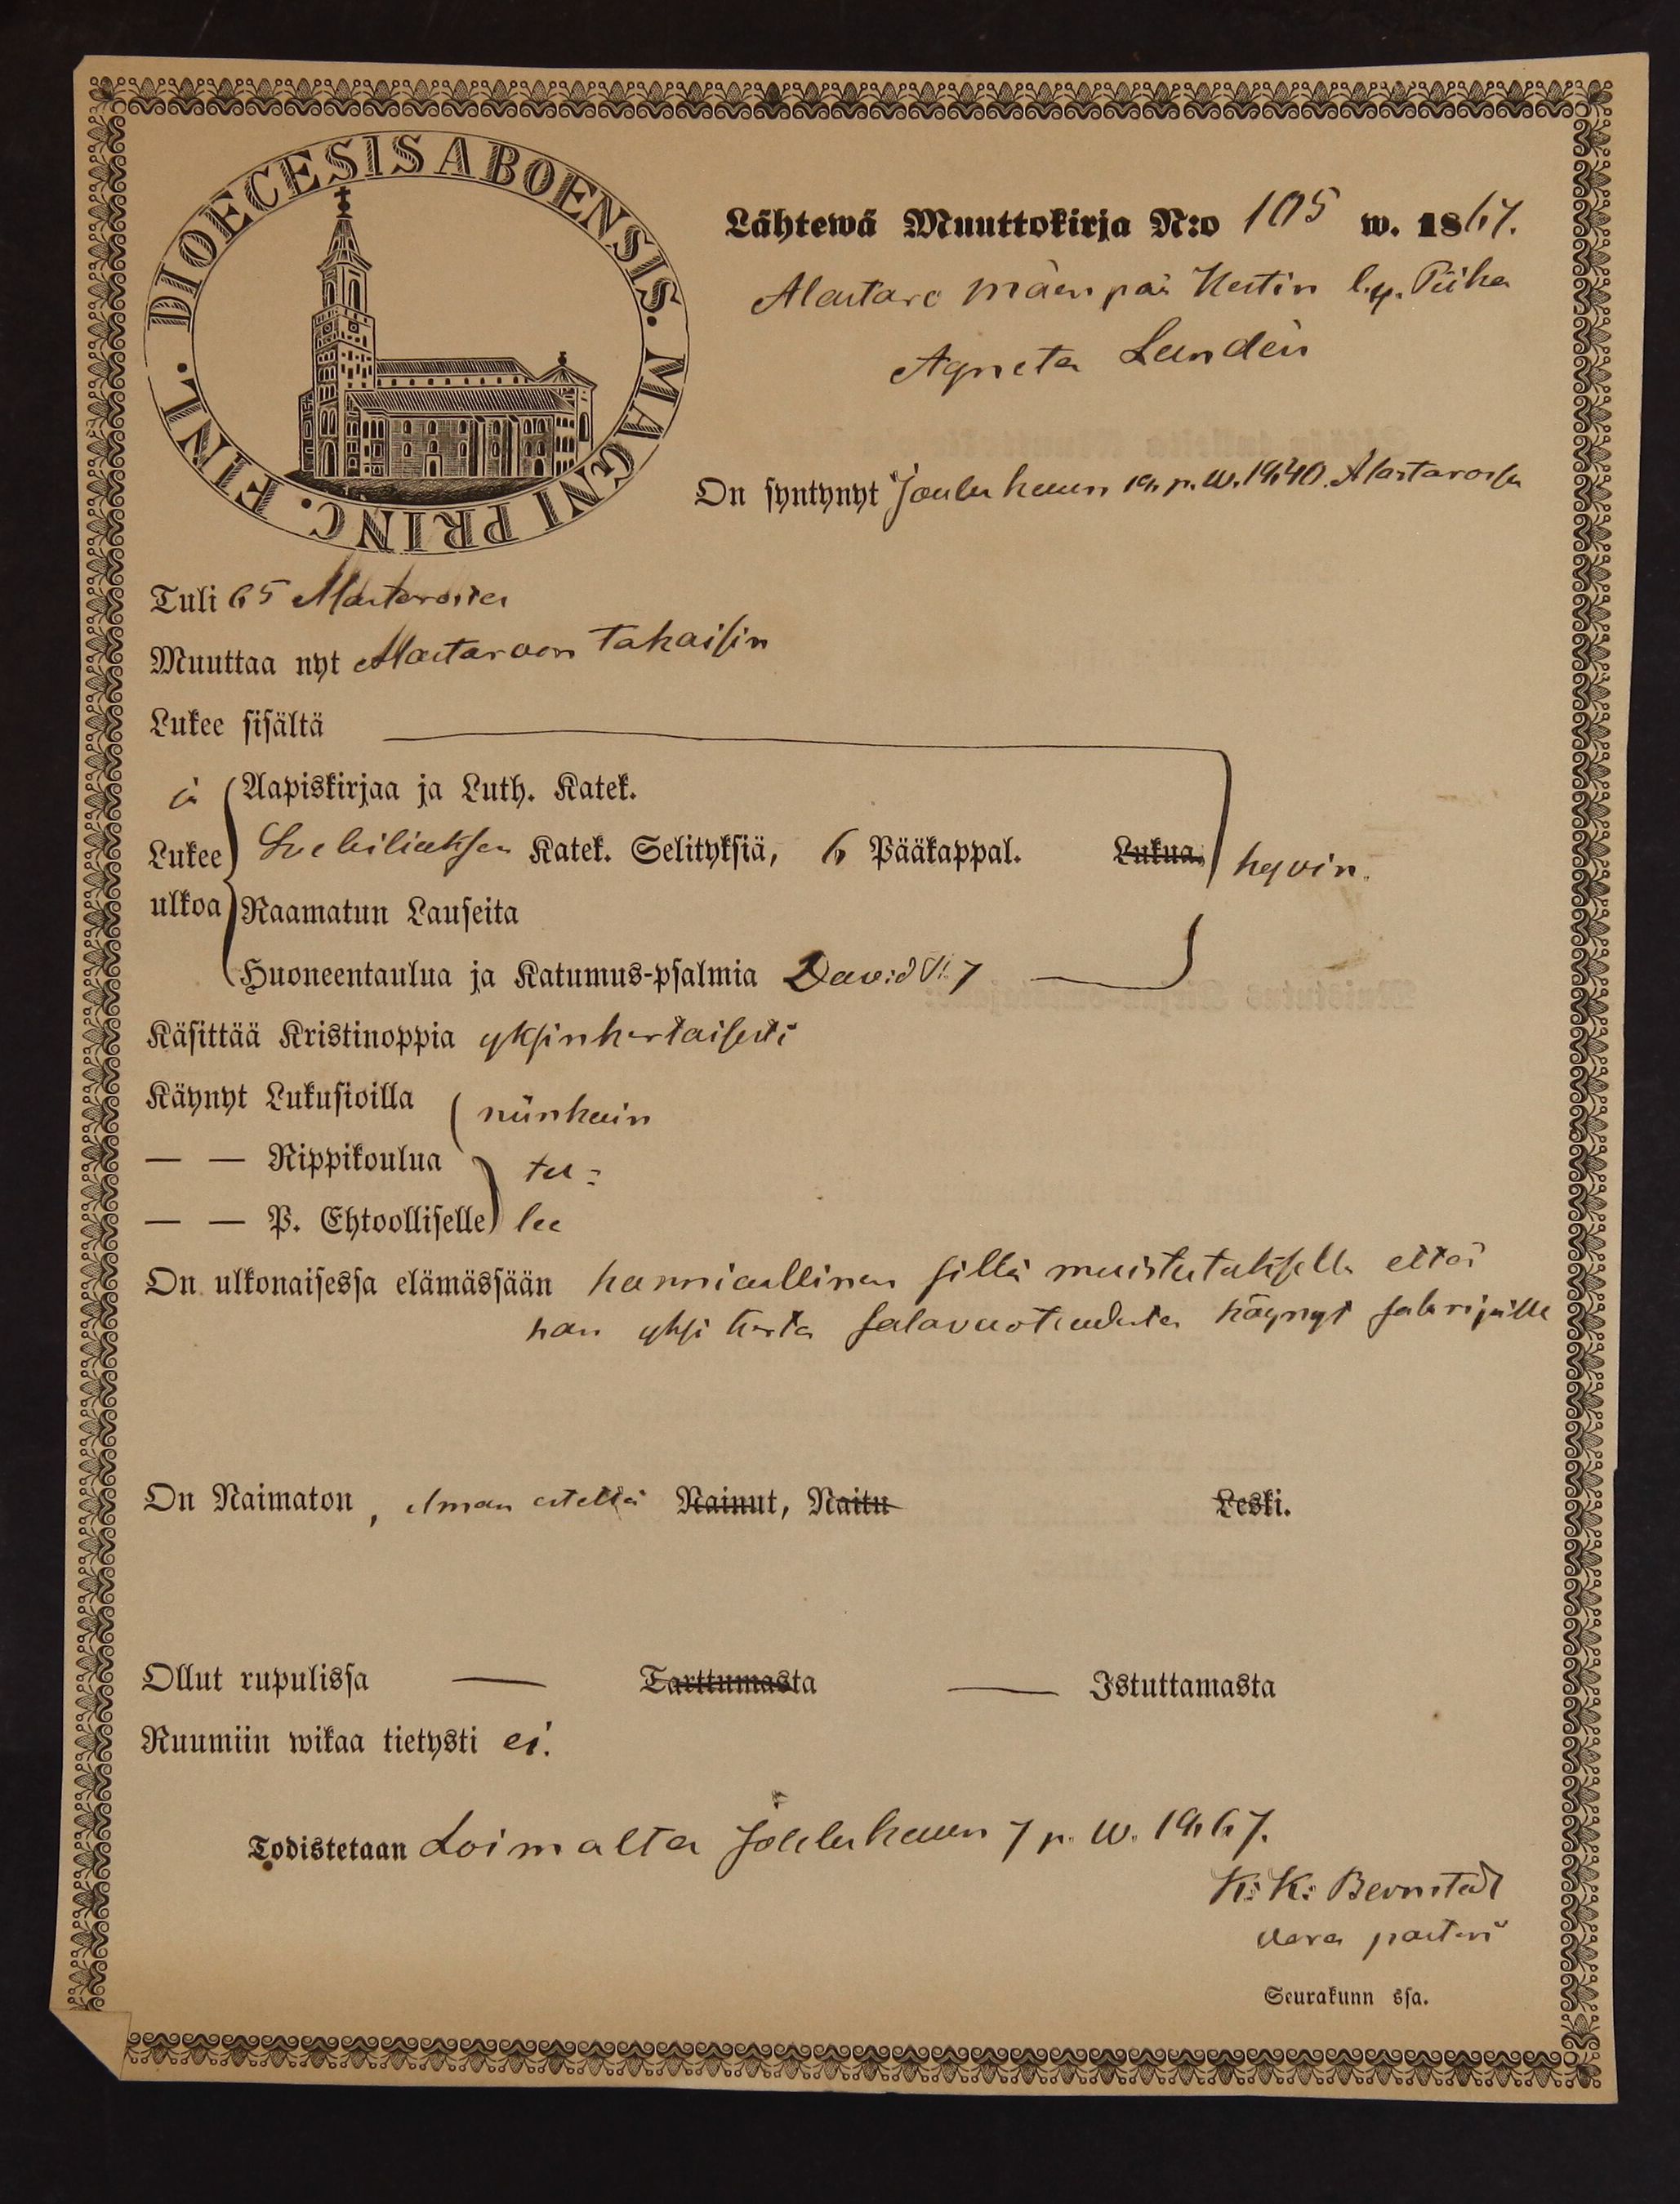 DIOECESIS ABOENSIS. MAGNI PRINC. FINL.
Lähtewä Muuttokirja N:o 105 w. 1867.
Alastaro Mäenpää Kestin Piika
Agneta Lundén
On syntynyt Joulukuun p. W. 1840. Alastarossa
Tuli 65 Alastarosta
Muuttaa nyt Alastaroon takaisin
Lukee sisältä
ja Aapiskirjaa ja Luth. Katek.
Lukee Svebiliuksen Katek. Selityksiä, 6 Pääkappal. Lukua. hyvin.
ulkoa Raamatun Lauseita
Huoneentaulua ja Katumus-psalmia David
Käsittää Kristinoppia yksinkertaisesti
Käynyt Lukusioilla niinkuin
— — Rippikoulua tu=
— — P. Ehtoolliselle lee
On ulkonaisessa elämässään kunniallinen sillä muistutuksella että
hän yksi kerta salavuoteudesta käynyt
On Naimaton, ilman estettä Nainut, Naitu Leski.
Ollut rupulissa — Tarttumasta — Istuttamasta
Ruumiin wikaa tietysti ei.
Todistetaan Loimalta Joulukuun 7 p. W. 1867.
K: K: Bernstedt
vara pastori
Seurakunn ssa.